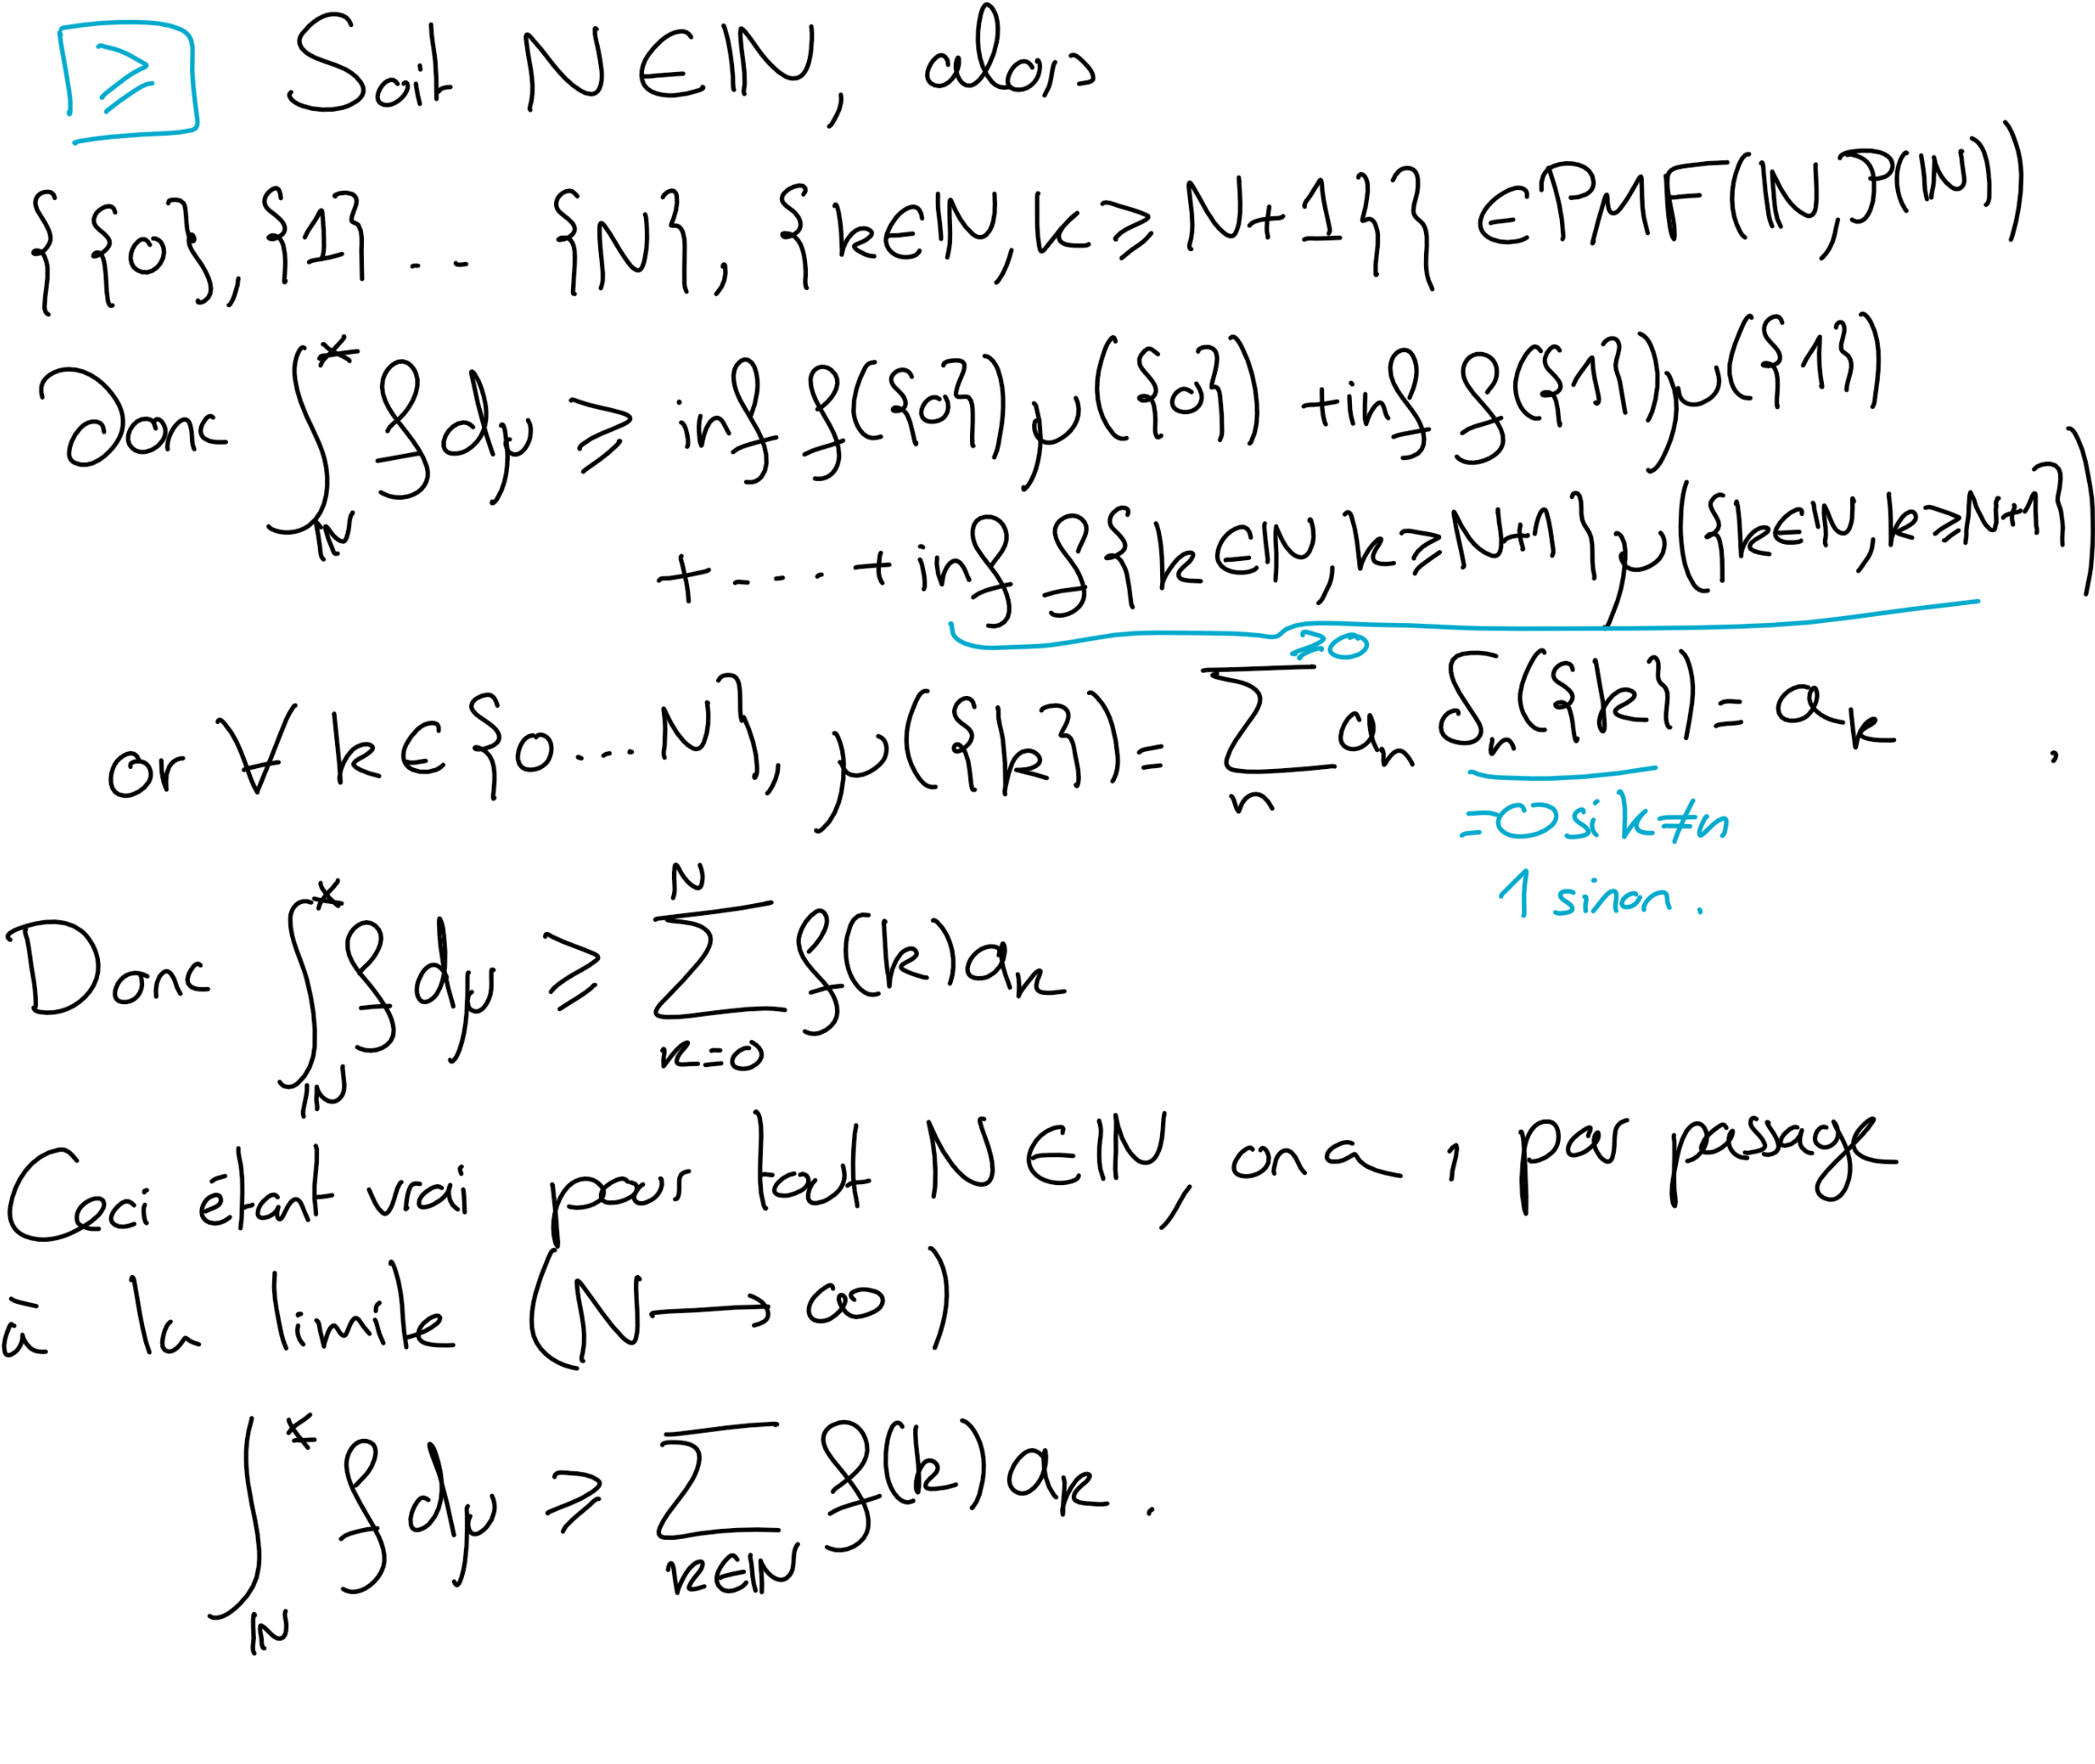 ≥ Soit N ∈ ℕ, alors
{{0}, {1} ... {N}, {k∈ℕ, k ≥ N+1}} ∈ PMF(ℕ, P(ℕ))
Donc ∫*_ℕ f dμ ≥ inf f({0}) μ({0}) + inf f({1}) μ({1})
+ ... + inf f{k∈ℕ, k ≥ N+1} μ({k∈ℕ, k ≥ N+1})
≥0
or ∀ k ∈ {0 ... N}, μ({k}) = ∑_n a_n δ_n({k}) = a_k,
= 0 si k ≠ n
1 sinon.
Donc ∫*_ℕ f dμ ≥ ∑_{k=0}^N f(k) a_k
Ceci étant vrai pour tout N ∈ ℕ, on a, par passage
à la limite (N → ∞)
∫*_ℕ f dμ ≥ ∑_{k∈ℕ} f(k) a_k.